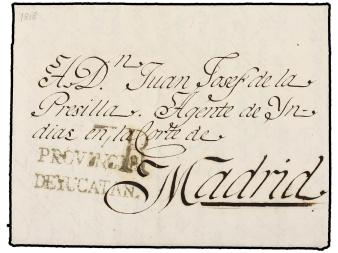 1818
A D.n Juan Josef de la
Presilla. Agente de Yn-
dias en la Corte de
Madrid.
PROVINCIA
DE YUCATAN.